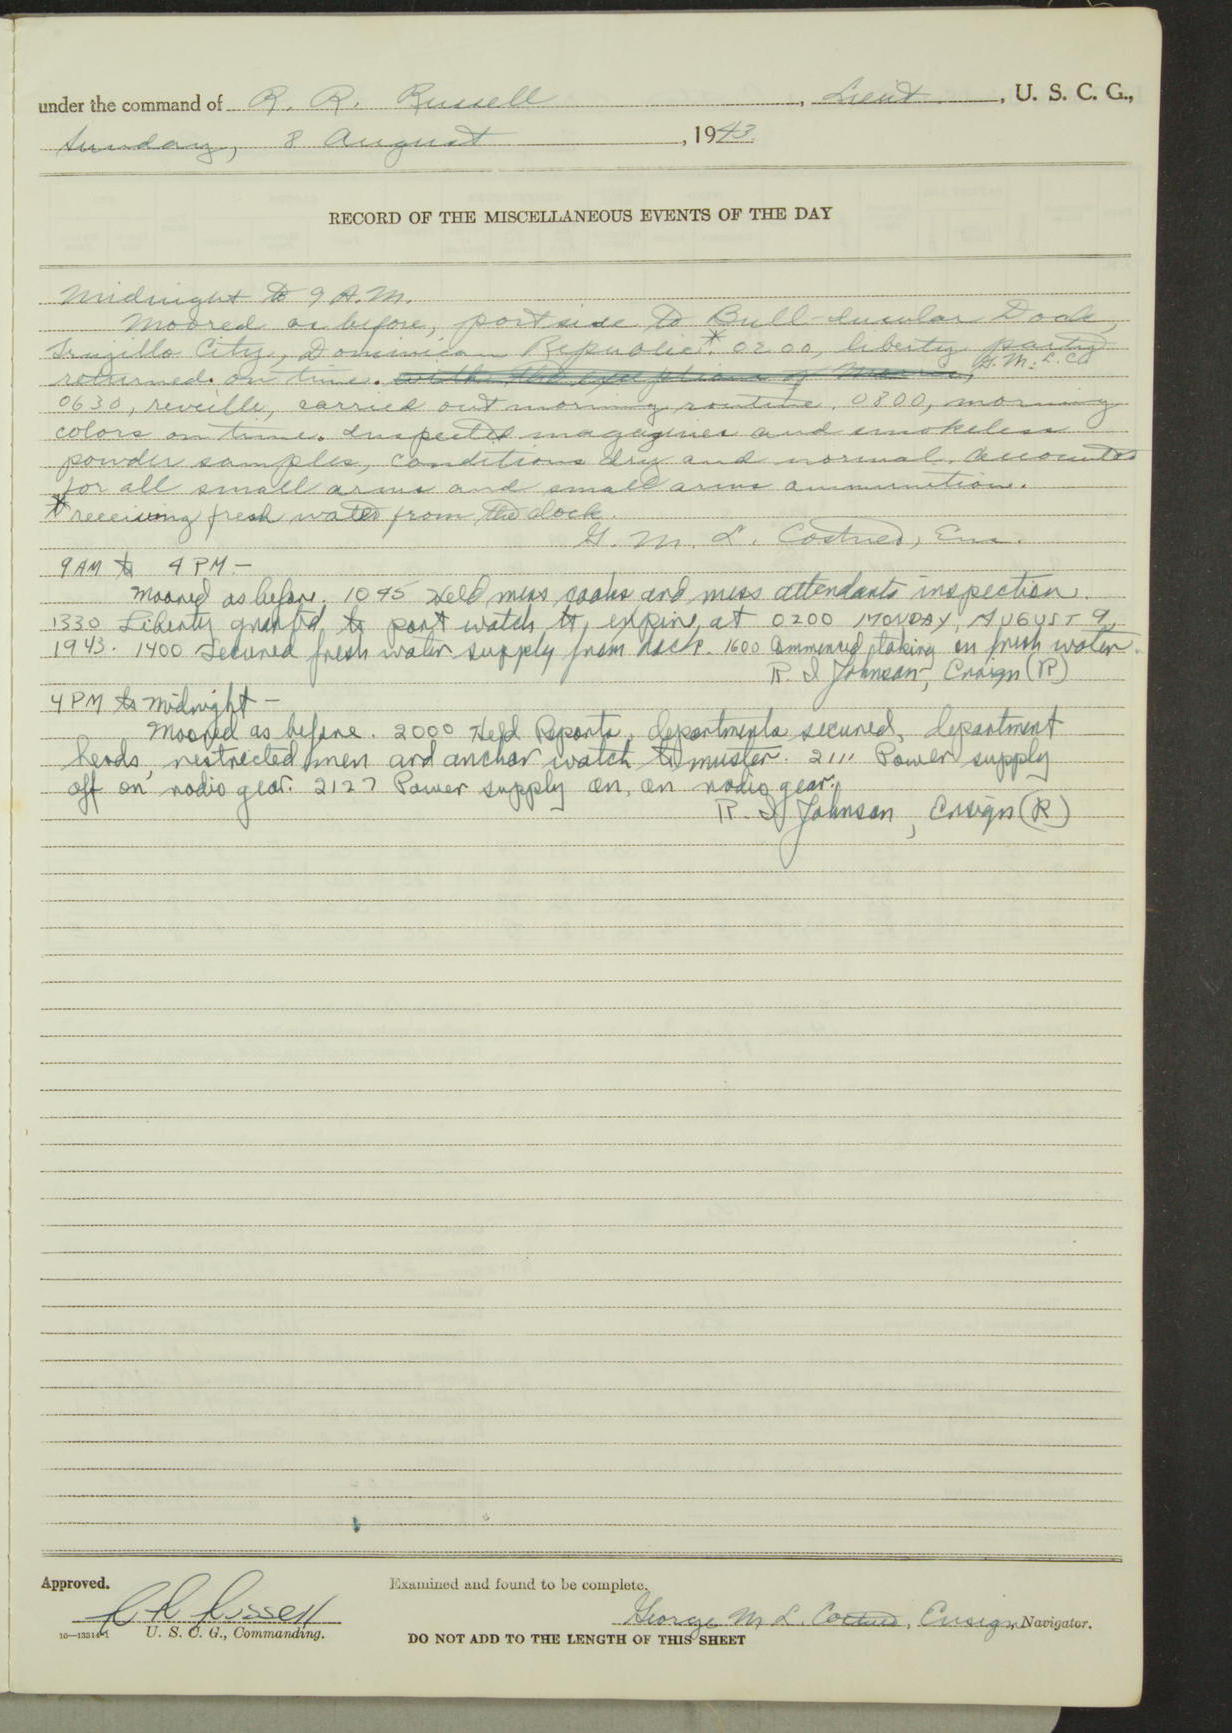 under the command of R. R. Russell, Lieut., U. S. C. G.,
Sunday, 8 August, 1943.
RECORD OF THE MISCELLANEOUS EVENTS OF THE DAY
Midnight to 9 A.M.
Moored as before, port side to Bull-Insular Dock,
Trujillo City, Dominican Republic*. 0200, liberty party
returned on time. with the exception of G. M. L. C.
0630, reveille, carried out morning routine. 0800, morning
colors on time. Inspected magazines and smokeless
powder samples, conditions dry and normal. Accounted
for all small arms and small arms ammunition.
* receiving fresh water from the dock.
G. M. L. Costner, Ens.
9 AM to 4 PM -
Moored as before. 1045 Held mess cooks and mess attendants inspection.
1330 Liberty granted to port watch to expire at 0200 MONDAY, AUGUST 9,
1943. 1400 Secured fresh water supply from dock. 1600 Commenced taking on fresh water.
R. I Johnson, Ensign (R)
4 PM to Midnight -
Moored as before. 2000 Held Reports, departments secured, department
heads, restricted men and anchor watch to muster. 2111 Power supply
off on radio gear. 2127 Power supply on, on radio gear.
R. I Johnson, Ensign (R)
Approved. Examined and found to be complete.
R R Russell George M. L. Costner, Ensign, Navigator.
16—13314-1 U. S. C. G., Commanding.
DO NOT ADD TO THE LENGTH OF THIS SHEET